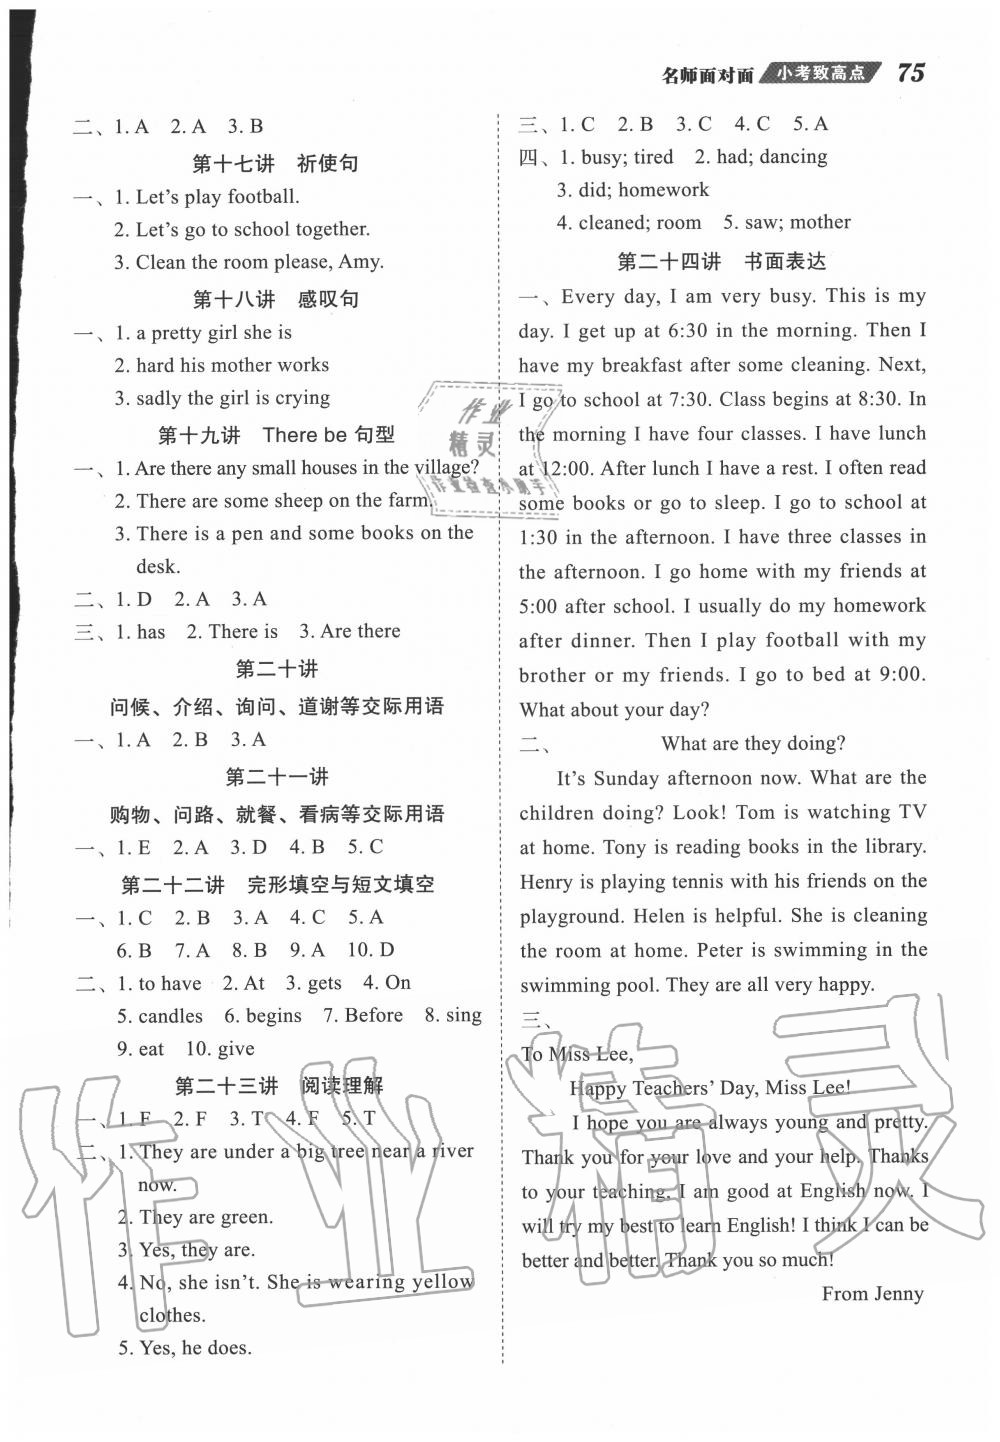 名师面对面 小考致高点 75
二、1. A 2. A 3. B
第十七讲 祈使句
一、1. Let's play football.
2. Let's go to school together.
3. Clean the room please, Amy.
第十八讲 感叹句
一、1. a pretty girl she is
2. hard his mother works
3. sadly the girl is crying
第十九讲 There be 句型
一、1. Are there any small houses in the village?
2. There are some sheep on the farm.
3. There is a pen and some books on the
desk.
二、1. D 2. A 3. A
三、1. has 2. There is 3. Are there
第二十讲
问候、介绍、询问、道谢等交际用语
一、1. A 2. B 3. A
第二十一讲
购物、问路、就餐、看病等交际用语
一、1. E 2. A 3. D 4. B 5. C
第二十二讲 完形填空与短文填空
一、1. C 2. B 3. A 4. C 5. A
6. B 7. A 8. B 9. A 10. D
二、1. to have 2. At 3. gets 4. On
5. candles 6. begins 7. Before 8. sing
9. eat 10. give
第二十三讲 阅读理解
一、1. F 2. F 3. T 4. F 5. T
二、1. They are under a big tree near a river
now.
2. They are green.
3. Yes, they are.
4. No, she isn't. She is wearing yellow
clothes.
5. Yes, he does.
三、1. C 2. B 3. C 4. C 5. A
四、1. busy; tired 2. had; dancing
3. did; homework
4. cleaned; room 5. saw; mother
第二十四讲 书面表达
一、Every day, I am very busy. This is my
day. I get up at 6:30 in the morning. Then I
have my breakfast after some cleaning. Next,
I go to school at 7:30. Class begins at 8:30. In
the morning I have four classes. I have lunch
at 12:00. After lunch I have a rest. I often read
some books or go to sleep. I go to school at
1:30 in the afternoon. I have three classes in
the afternoon. I go home with my friends at
5:00 after school. I usually do my homework
after dinner. Then I play football with my
brother or my friends. I go to bed at 9:00.
What about your day?
二、 What are they doing?
It's Sunday afternoon now. What are the
children doing? Look! Tom is watching TV
at home. Tony is reading books in the library.
Henry is playing tennis with his friends on the
playground. Helen is helpful. She is cleaning
the room at home. Peter is swimming in the
swimming pool. They are all very happy.
三、
To Miss Lee,
Happy Teachers' Day, Miss Lee!
I hope you are always young and pretty.
Thank you for your love and your help. Thanks
to your teaching, I am good at English now. I
will try my best to learn English! I think I can be
better and better. Thank you so much!
From Jenny
作业
精灵
作业精灵